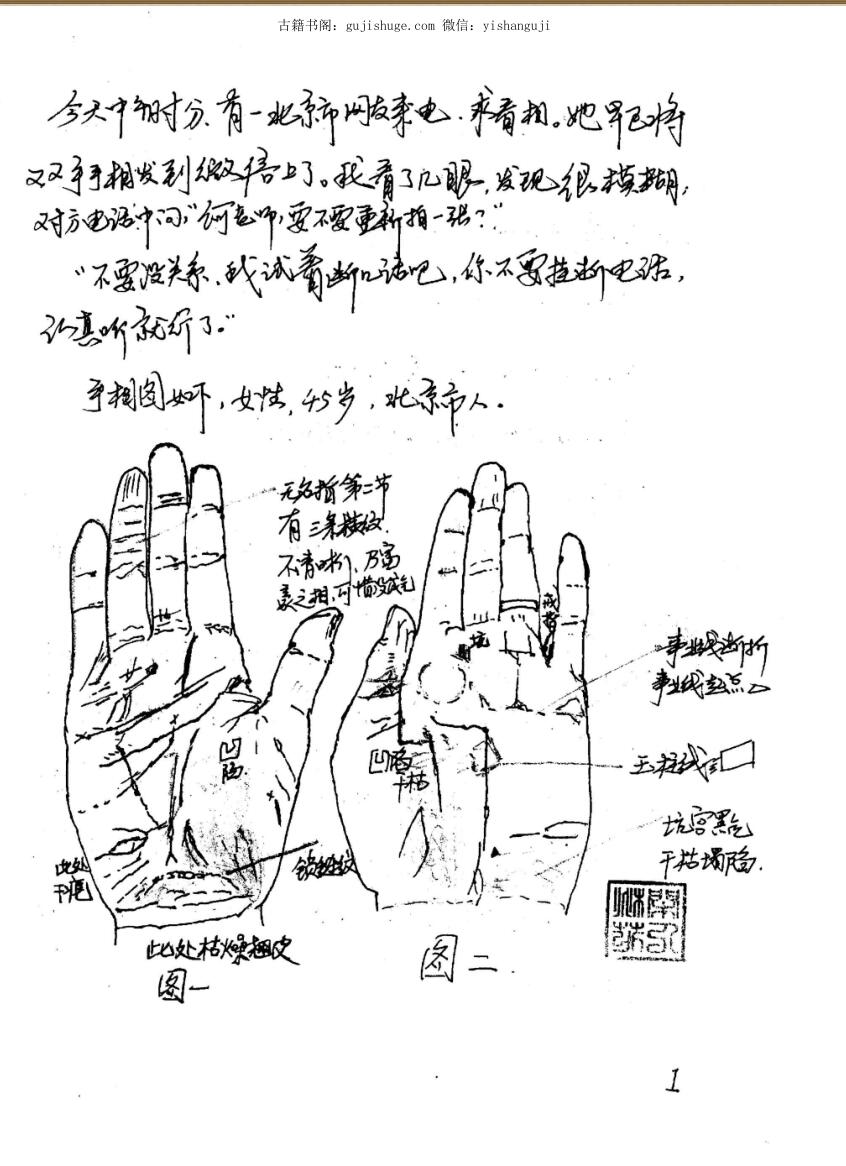 古籍书阁：gujishuge.com 微信：yishanguji
今天中午时分、有一北京市网友来电、求看相。她早已将
双手手相发到微信上了。我看了几眼，发现很模糊，
对方电话中问，“何老师，要不要重新拍一张？”
“不要没关系、我试着断几话吧，你不要挂断电话，
认真听就行了。”
手相图如下，女性，45岁，北京市人。
无名指第二节
有三条横纹
不清晰，乃富
贵之相，可惜没成气
戒指
坑
事业线断折
事业线起点
凹陷
凹陷
干枯
玉柱线
坑宫黑气
干枯塌陷.
此处
锁链纹
此处枯燥翘皮
图一
图二
1